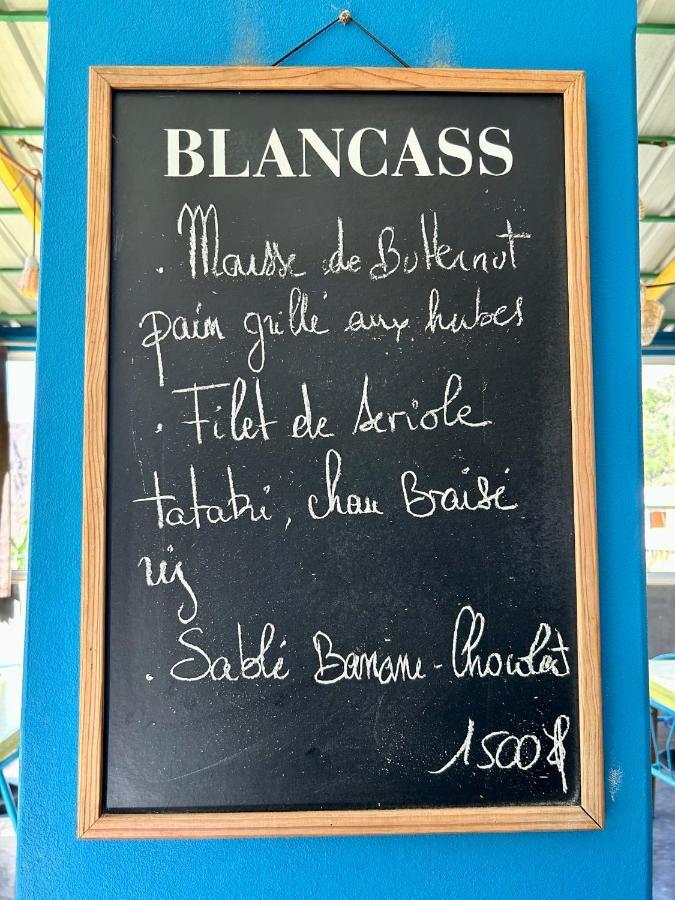 BLANCASS
. Mousse de Butternut
pain grillé aux herbes
. Filet de Seriole
tataki, chou Braisé
riz
. Sablé Banane-Chocolat
1500$